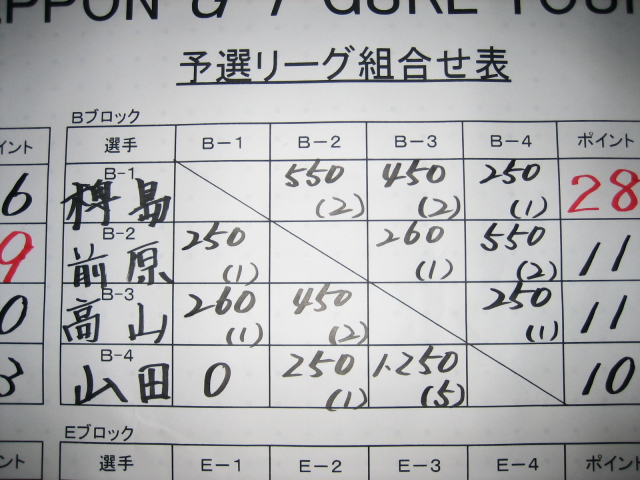 予選リーグ組合せ表
Bブロック
イント 選手 B-1 B-2 B-3 B-4 ポイント
B-1
6 樽島 550 (2) 450 (2) 250 (1) 28
B-2
9 前原 250 (1) 260 (1) 550 (2) 11
B-3
0 高山 260 (1) 450 (2) 250 (1) 11
B-4
3 山田 0 250 (1) 1.250 (5) 10
Eブロック
ント 選手 E-1 E-2 E-3 E-4 ポイント